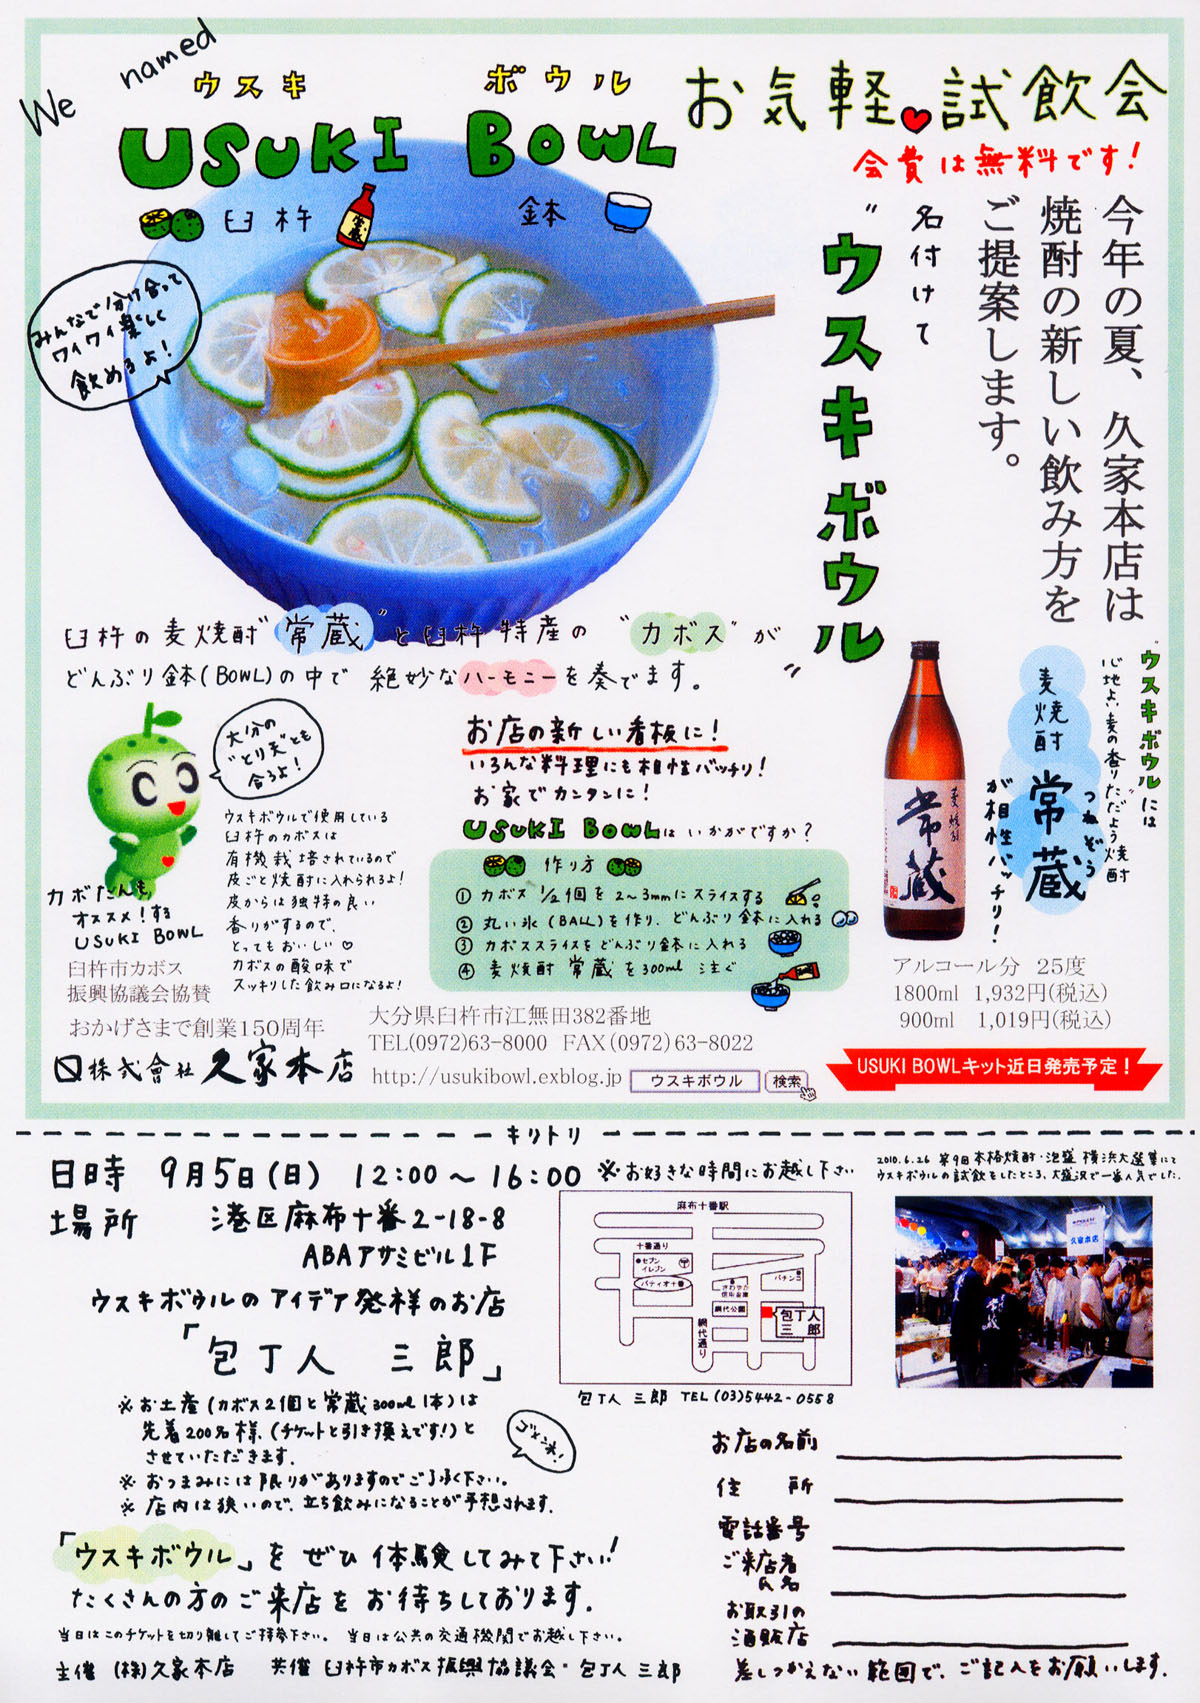 We named
ウスキ ボウル
USUKI BOWL
臼杵 鉢
お気軽 試飲会
会費は無料です！
今年の夏、久家本店は
焼酎の新しい飲み方を
ご提案します。
名付けて
"ウスキボウル"
みんなで分け合って
ワイワイ楽しく
飲めるよ！
臼杵の麦焼酎"常蔵"と臼杵特産の"カボス"が
どんぶり鉢(BOWL)の中で 絶妙なハーモニーを奏でます。
大分の
"とり天"とも
合うよ！
カボたんも
オススメ！する
USUKI BOWL
ウスキボウルで使用している
臼杵のカボスは
有機栽培されているので
皮ごと焼酎に入れられるよ！
皮からは独特の良い
香りがするので、
とってもおいしい♡
カボスの酸味で
スッキリした飲み口になるよ！
お店の新しい看板に！
いろんな料理にも相性バッチリ！
お家でカンタンに！
USUKI BOWLはいかがですか？
作り方
① カボス 1/2個を2〜3mmにスライスする
② 丸い氷(BALL)を作り、どんぶり鉢に入れる
③ カボススライスをどんぶり鉢に入れる
④ 麦焼酎 常蔵を300ml 注ぐ
"ウスキボウル"には
心地よい麦の香りただよう焼酎
麦焼酎 常蔵
つねぞう
が相性バッチリ！
麦焼酎
常蔵
アルコール分 25度
1800ml 1,932円(税込)
900ml 1,019円(税込)
USUKI BOWLキット近日発売予定！
臼杵市カボス
振興協議会協賛
おかげさまで創業150周年
株式會社 久家本店
大分県臼杵市江無田382番地
TEL(0972)63-8000 FAX(0972)63-8022
http://usukibowl.exblog.jp ウスキボウル 検索
キリトリ
日時 9月5日(日) 12:00〜16:00 ※お好きな時間にお越し下さい
場所 港区麻布十番2-18-8
ABAアサミビル1F
ウスキボウルのアイデア発祥のお店
「包丁人 三郎」
※お土産(カボス2個と常蔵300ml 1本)は
先着200名様、(チケットと引き換えです!)と
させていただきます。
ゴメンネ!
※おつまみには限りがありますのでご了承下さい。
※店内は狭いので、立ち飲みになることが予想されます。
麻布十番駅
十番通り
セブン
イレブン
パティオ十番
さわやか
信用金庫
パチンコ
網代公園
網代通り
包丁人
三郎
包丁人 三郎 TEL (03)5442-0558
2010.6.26 第9回本格焼酎・泡盛 横浜大選集にて
ウスキボウルの試飲をしたところ、大盛況で一番人気でした。
久家本店
「ウスキボウル」をぜひ体験してみて下さい！
たくさんの方のご来店をお待ちしております。
当日はこのチケットを切り離してご持参下さい。 当日は公共の交通機関でお越し下さい。
主催 (株)久家本店 共催 臼杵市カボス振興協議会・包丁人 三郎
お店の名前
住所
電話番号
ご来店者
氏名
お取引の
酒販店
差しつかえない範囲で、ご記入をお願いします。